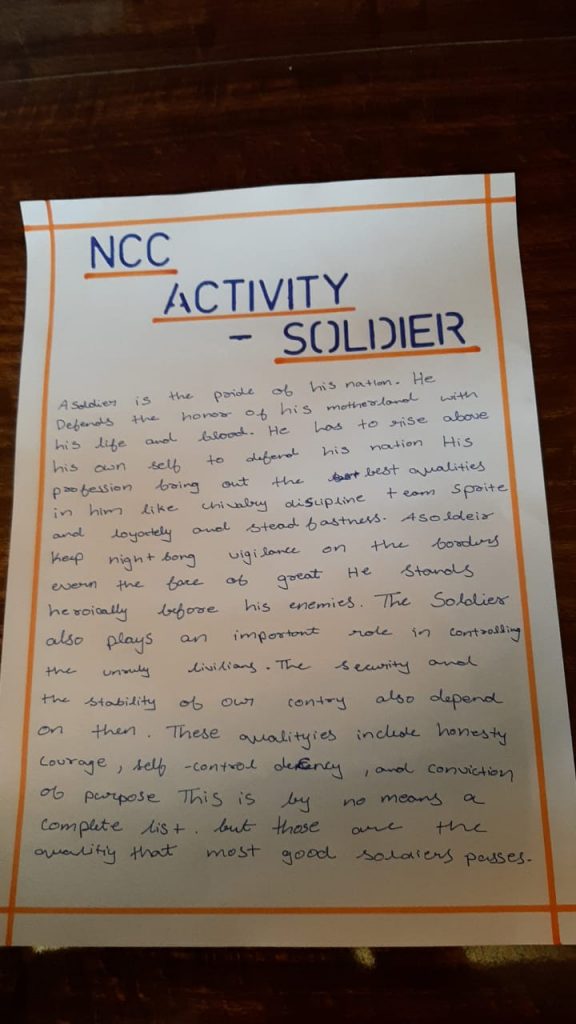 NCC
ACTIVITY
- SOLDIER
A soldier is the pride of his nation. He
Defends the honor of his motherland with
his life and blood. He has to rise above
his own self to defend his nation His
profession bring out the best qualities
in him like chivalry discipline team sprite
and loyortely and steadfastness. A soldeir
Keep night bong vigilance on the borders
evern the face of great He stands
heroically before his enemies. The Soldier
also plays an important role in controlling
the unruly livilians. The security and
the stability of our contry also depend
on then. These qualityies include honesty
courage, self-control decency, and conviction
of purpose This is by no means a
complete list. but those are the
qualitiy that most good soldiers passes.